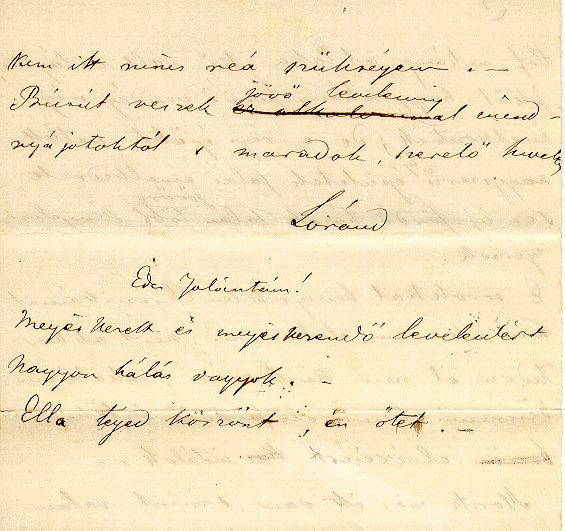 nem itt nincs reá szükségem. —
Búcsút veszek jövő levelemig mind-
nyájotoktól s maradok, szerető
Lóránd
Édes Jolántám!
Megérkezett és megérkezendő leveledért
nagyon hálás vagyok. —
Ella téged köszönt, én őtet. —